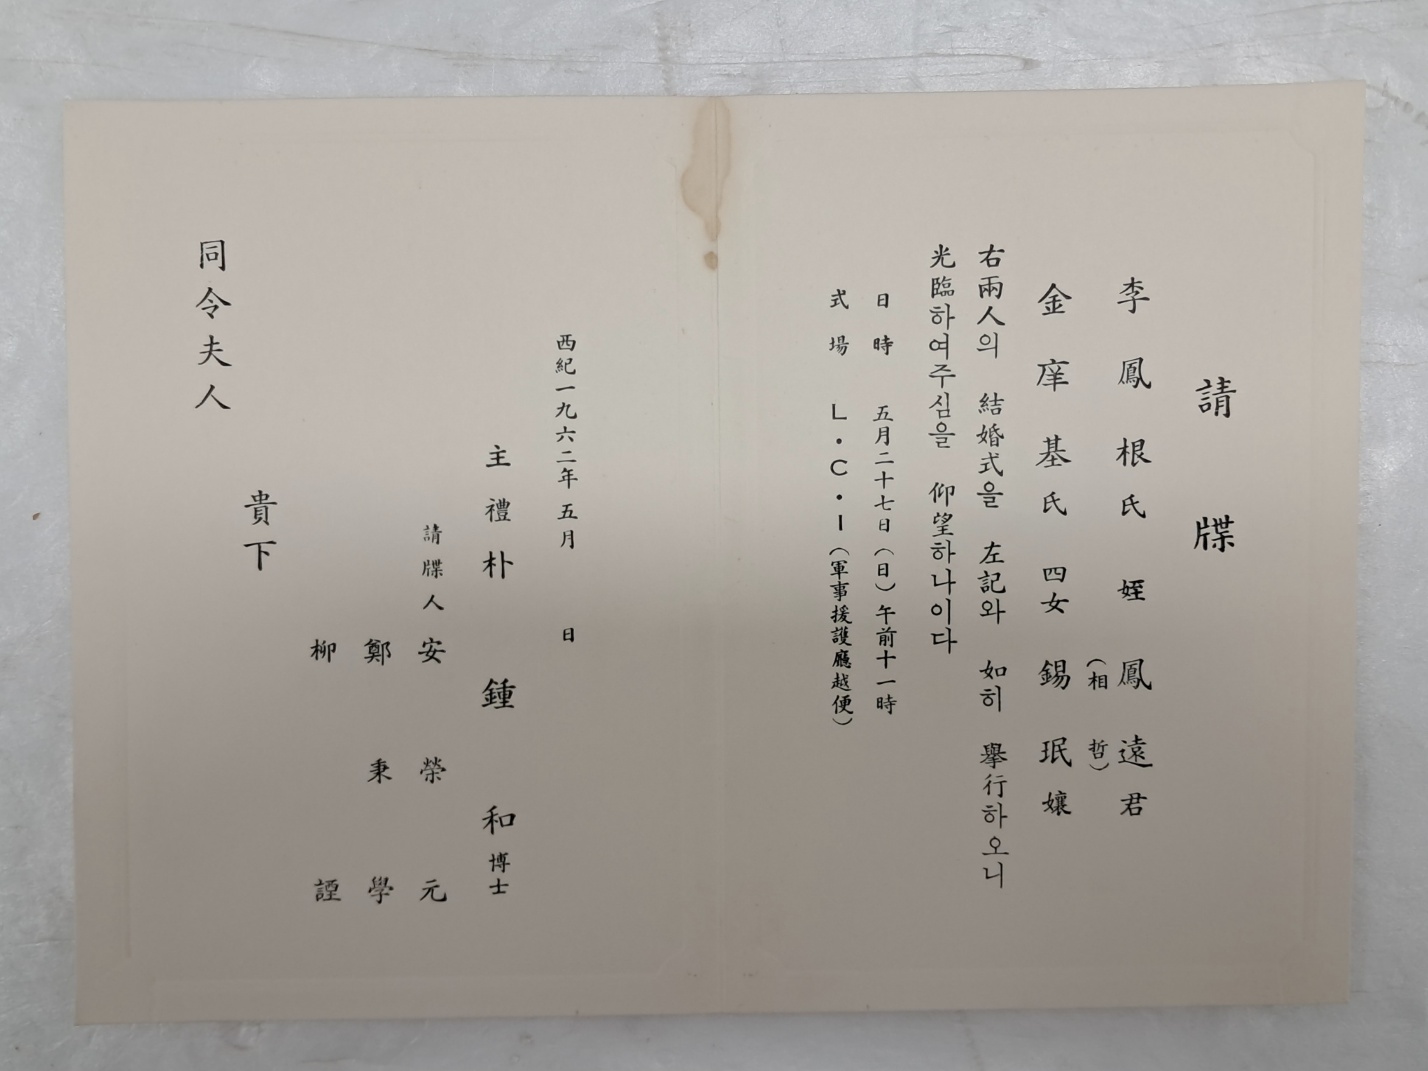 請牒
李鳳根氏 姪 鳳遠君
(相哲)
金庠基氏 四女 錫珉孃
右兩人의 結婚式을 左記와 如히 擧行하오니
光臨하여주심을 仰望하나이다
日時 五月二十七日(日)午前十一時
式場 L·C·I(軍事援護廳越便)
西紀一九六二年五月 日
主禮 朴鍾和博士
請牒人 安榮元
鄭秉學
柳謹
貴下
同令夫人